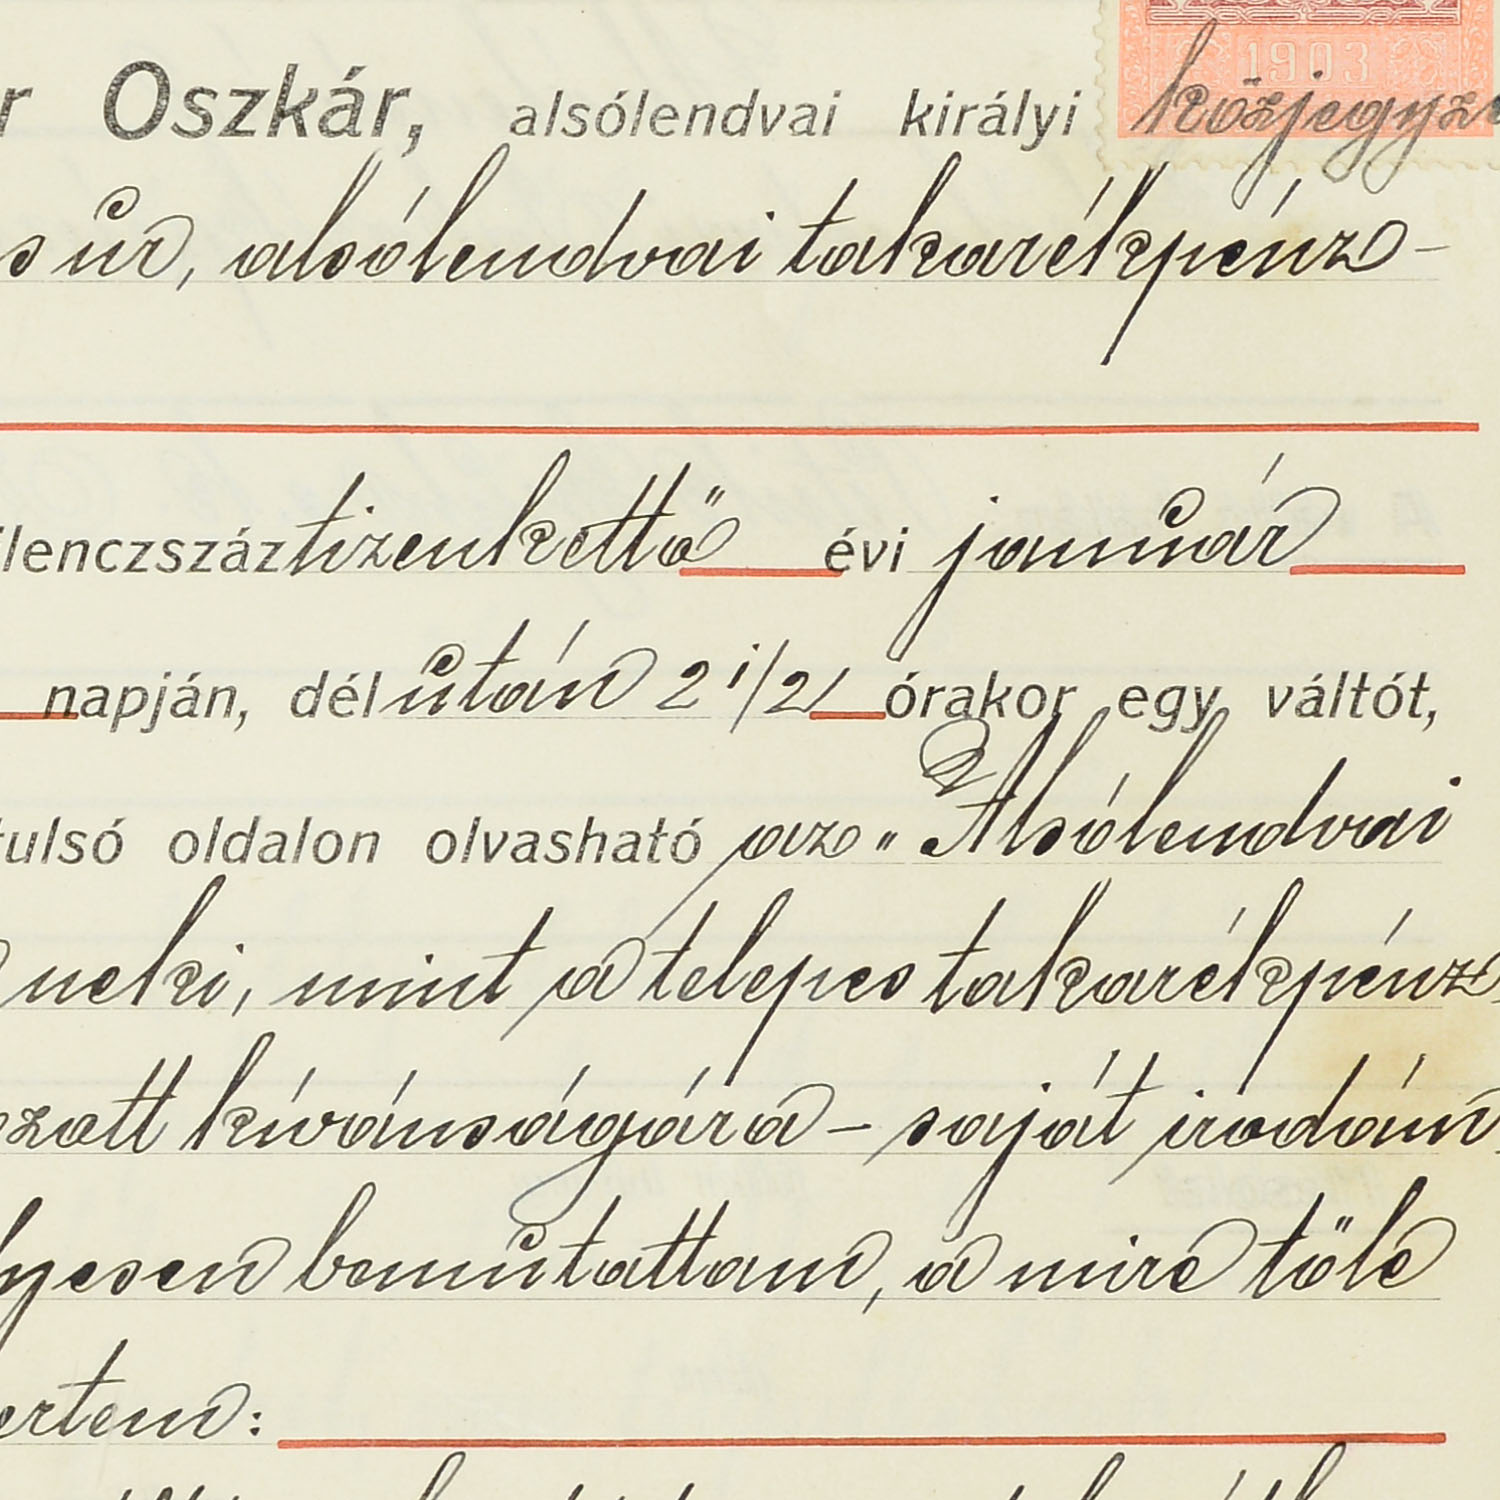 r Oszkár, alsólendvai királyi közjegyző
1903
s úr, alsólendvai takarékpénz-
ilenczszáztizenkettő évi január
napján, délután 2 1/2 órakor egy váltót,
tulsó oldalon olvasható az "Alsólendvai
neki, mint a telepes takarékpénz
ozott kívánságára - saját irodám
lyesen bemutattam, a mire tőle
ertem: